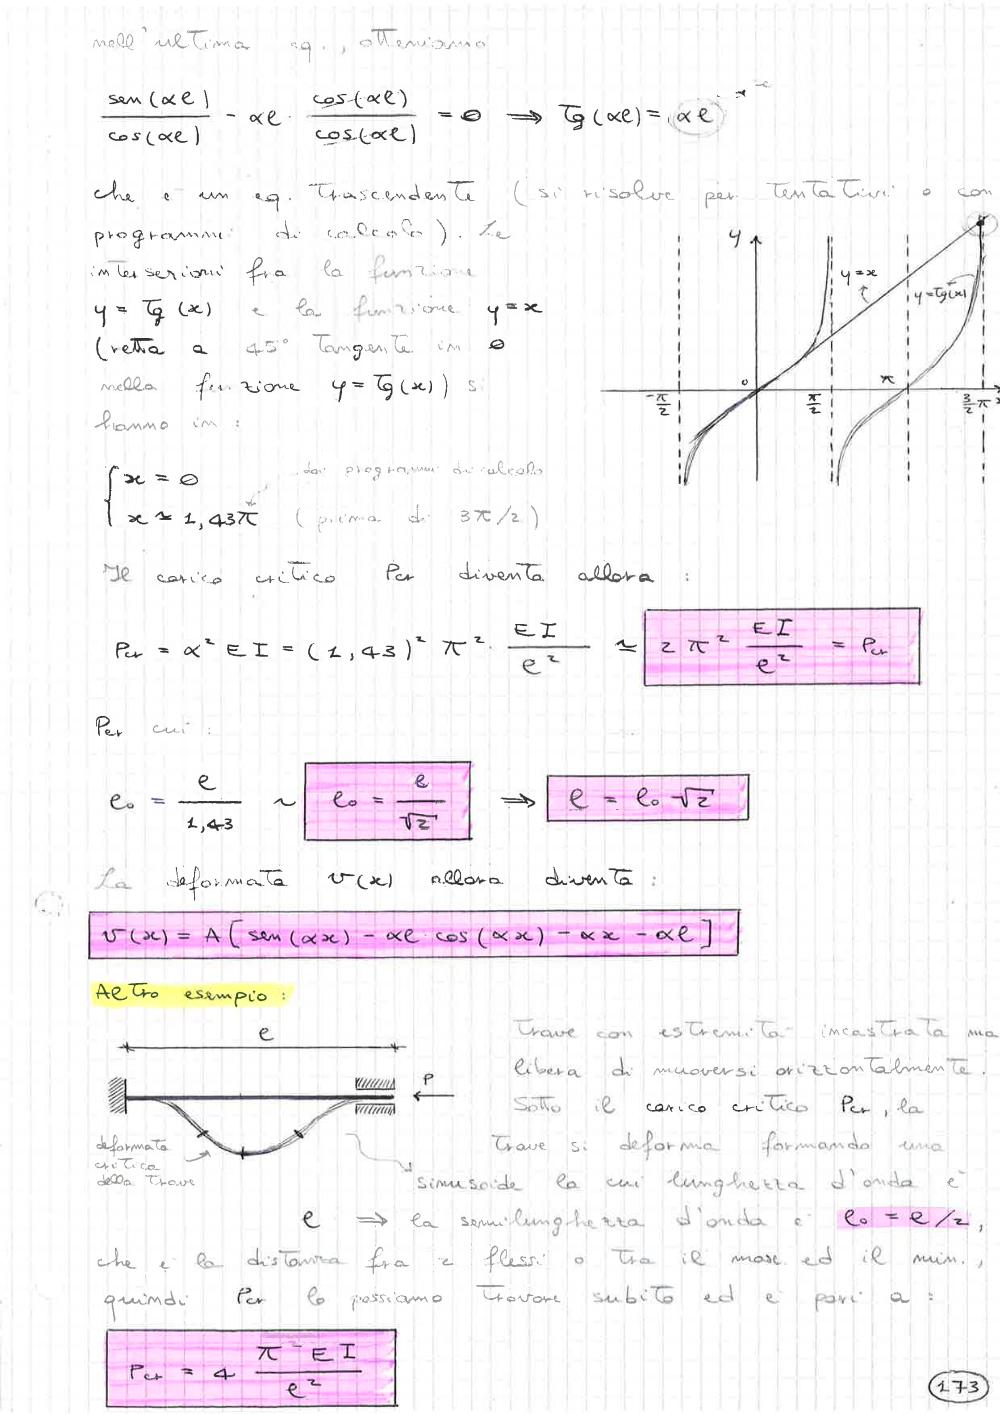 nell'ultima eq., otteniamo
sen(αl)/cos(αl) - αl · cos(αl)/cos(αl) = 0 ⟹ Tg(αl) = αl
che è un eq. Trascendente (si risolve per Tentativi o con
programmi di calcolo). Le
intersezioni fra la funzione
y = Tg(x) e la funzione y=x
(retta a 45° Tangente in 0
nella funzione y=Tg(x)) si
hanno in:
y
y=x
y=Tg(x)
0
-π/2
π/2
π
3/2 π
x
x = 0
dai programmi di calcolo
x ≃ 1,43π (prima di 3π/2)
Il carico critico Pcr diventa allora :
Pcr = α² EI = (1,43)² π² · EI/l² ≃ 2 π² EI/l² = Pcr
Per cui :
lo = l/1,43 ~ lo = l/√2 ⟹ l = lo √2
La deformata v(x) allora diventa :
v(x) = A[sen(αx) - αl cos(αx) - αx - αl]
Altro esempio :
l
P
deformata
critica
della Trave
Trave con estremità incastrata ma
libera di muoversi orizzontalmente.
Sotto il carico critico Pcr, la
Trave si deforma formando una
sinusoide la cui lunghezza d'onda è
l ⟹ la semilunghezza d'onda è lo = l/2,
che è la distanza fra 2 flessi o tra il max ed il min.,
quindi Pcr lo possiamo Trovare subito ed è pari a :
Pcr = 4 π² EI/l²
173